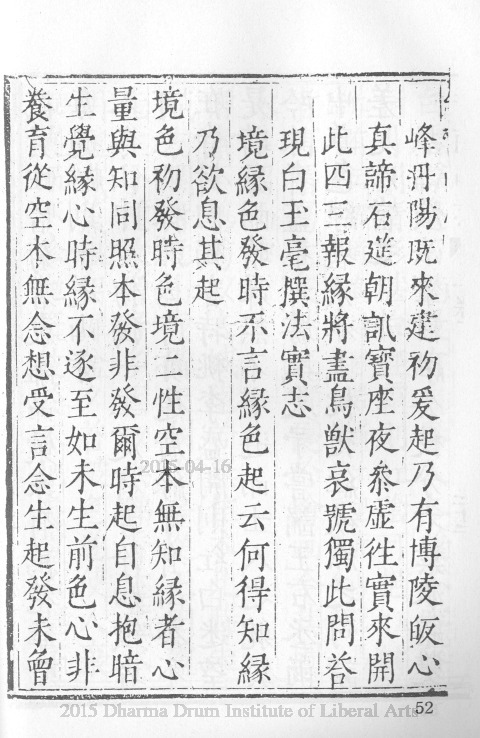 峰丹陽既來建初爰起乃有博陵皈心
真諦石趍朝訊寶座夜叅虚徃實來開
此四三報緣將盡鳥獸哀號獨此問荅
現白玉毫撰法實志
境緣色發時不言緣色起云何得知緣
乃欲息其起
境色初發時色境二性空本無知緣者心
量與知同照本發非發爾時起自息抱暗
生覺緣心時緣不逐至如未生前色心非
養育從空本無念想受言念生起發未曾
2015-04-16
52
2015 Dharma Drum Institute of Liberal Arts